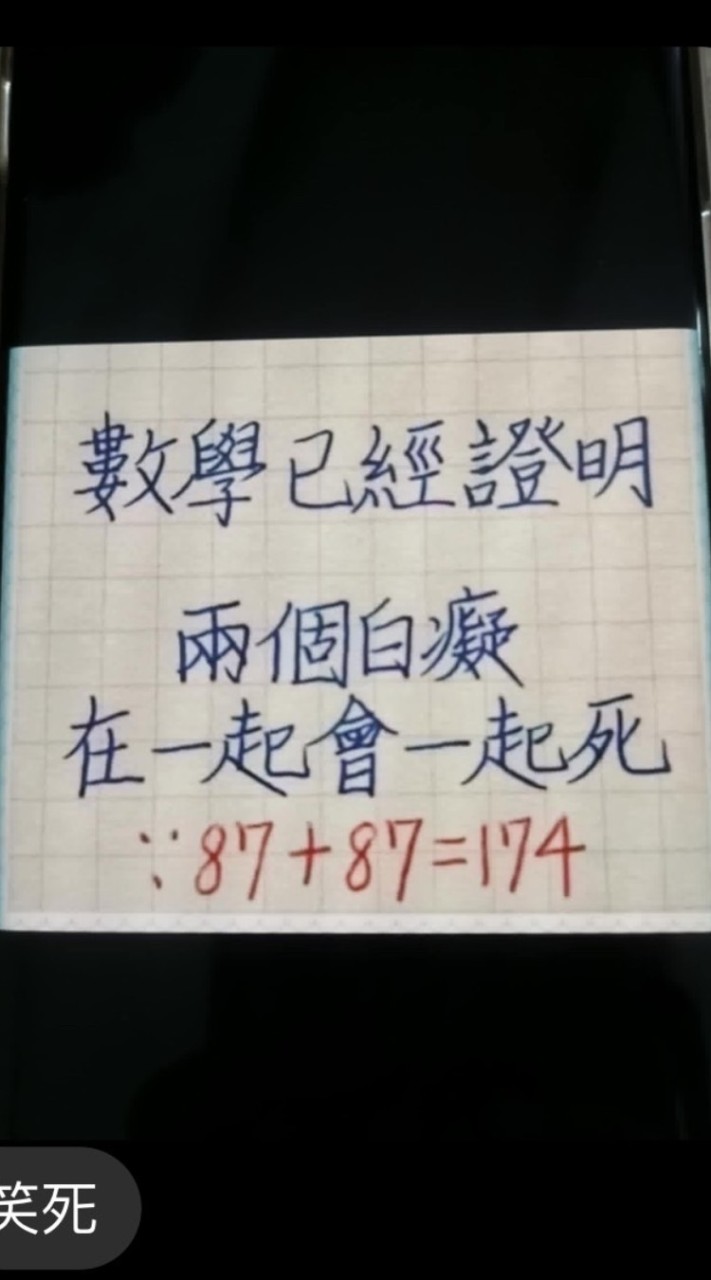 數學已經證明
兩個白癡
在一起會一起死
∵87+87=174
笑死